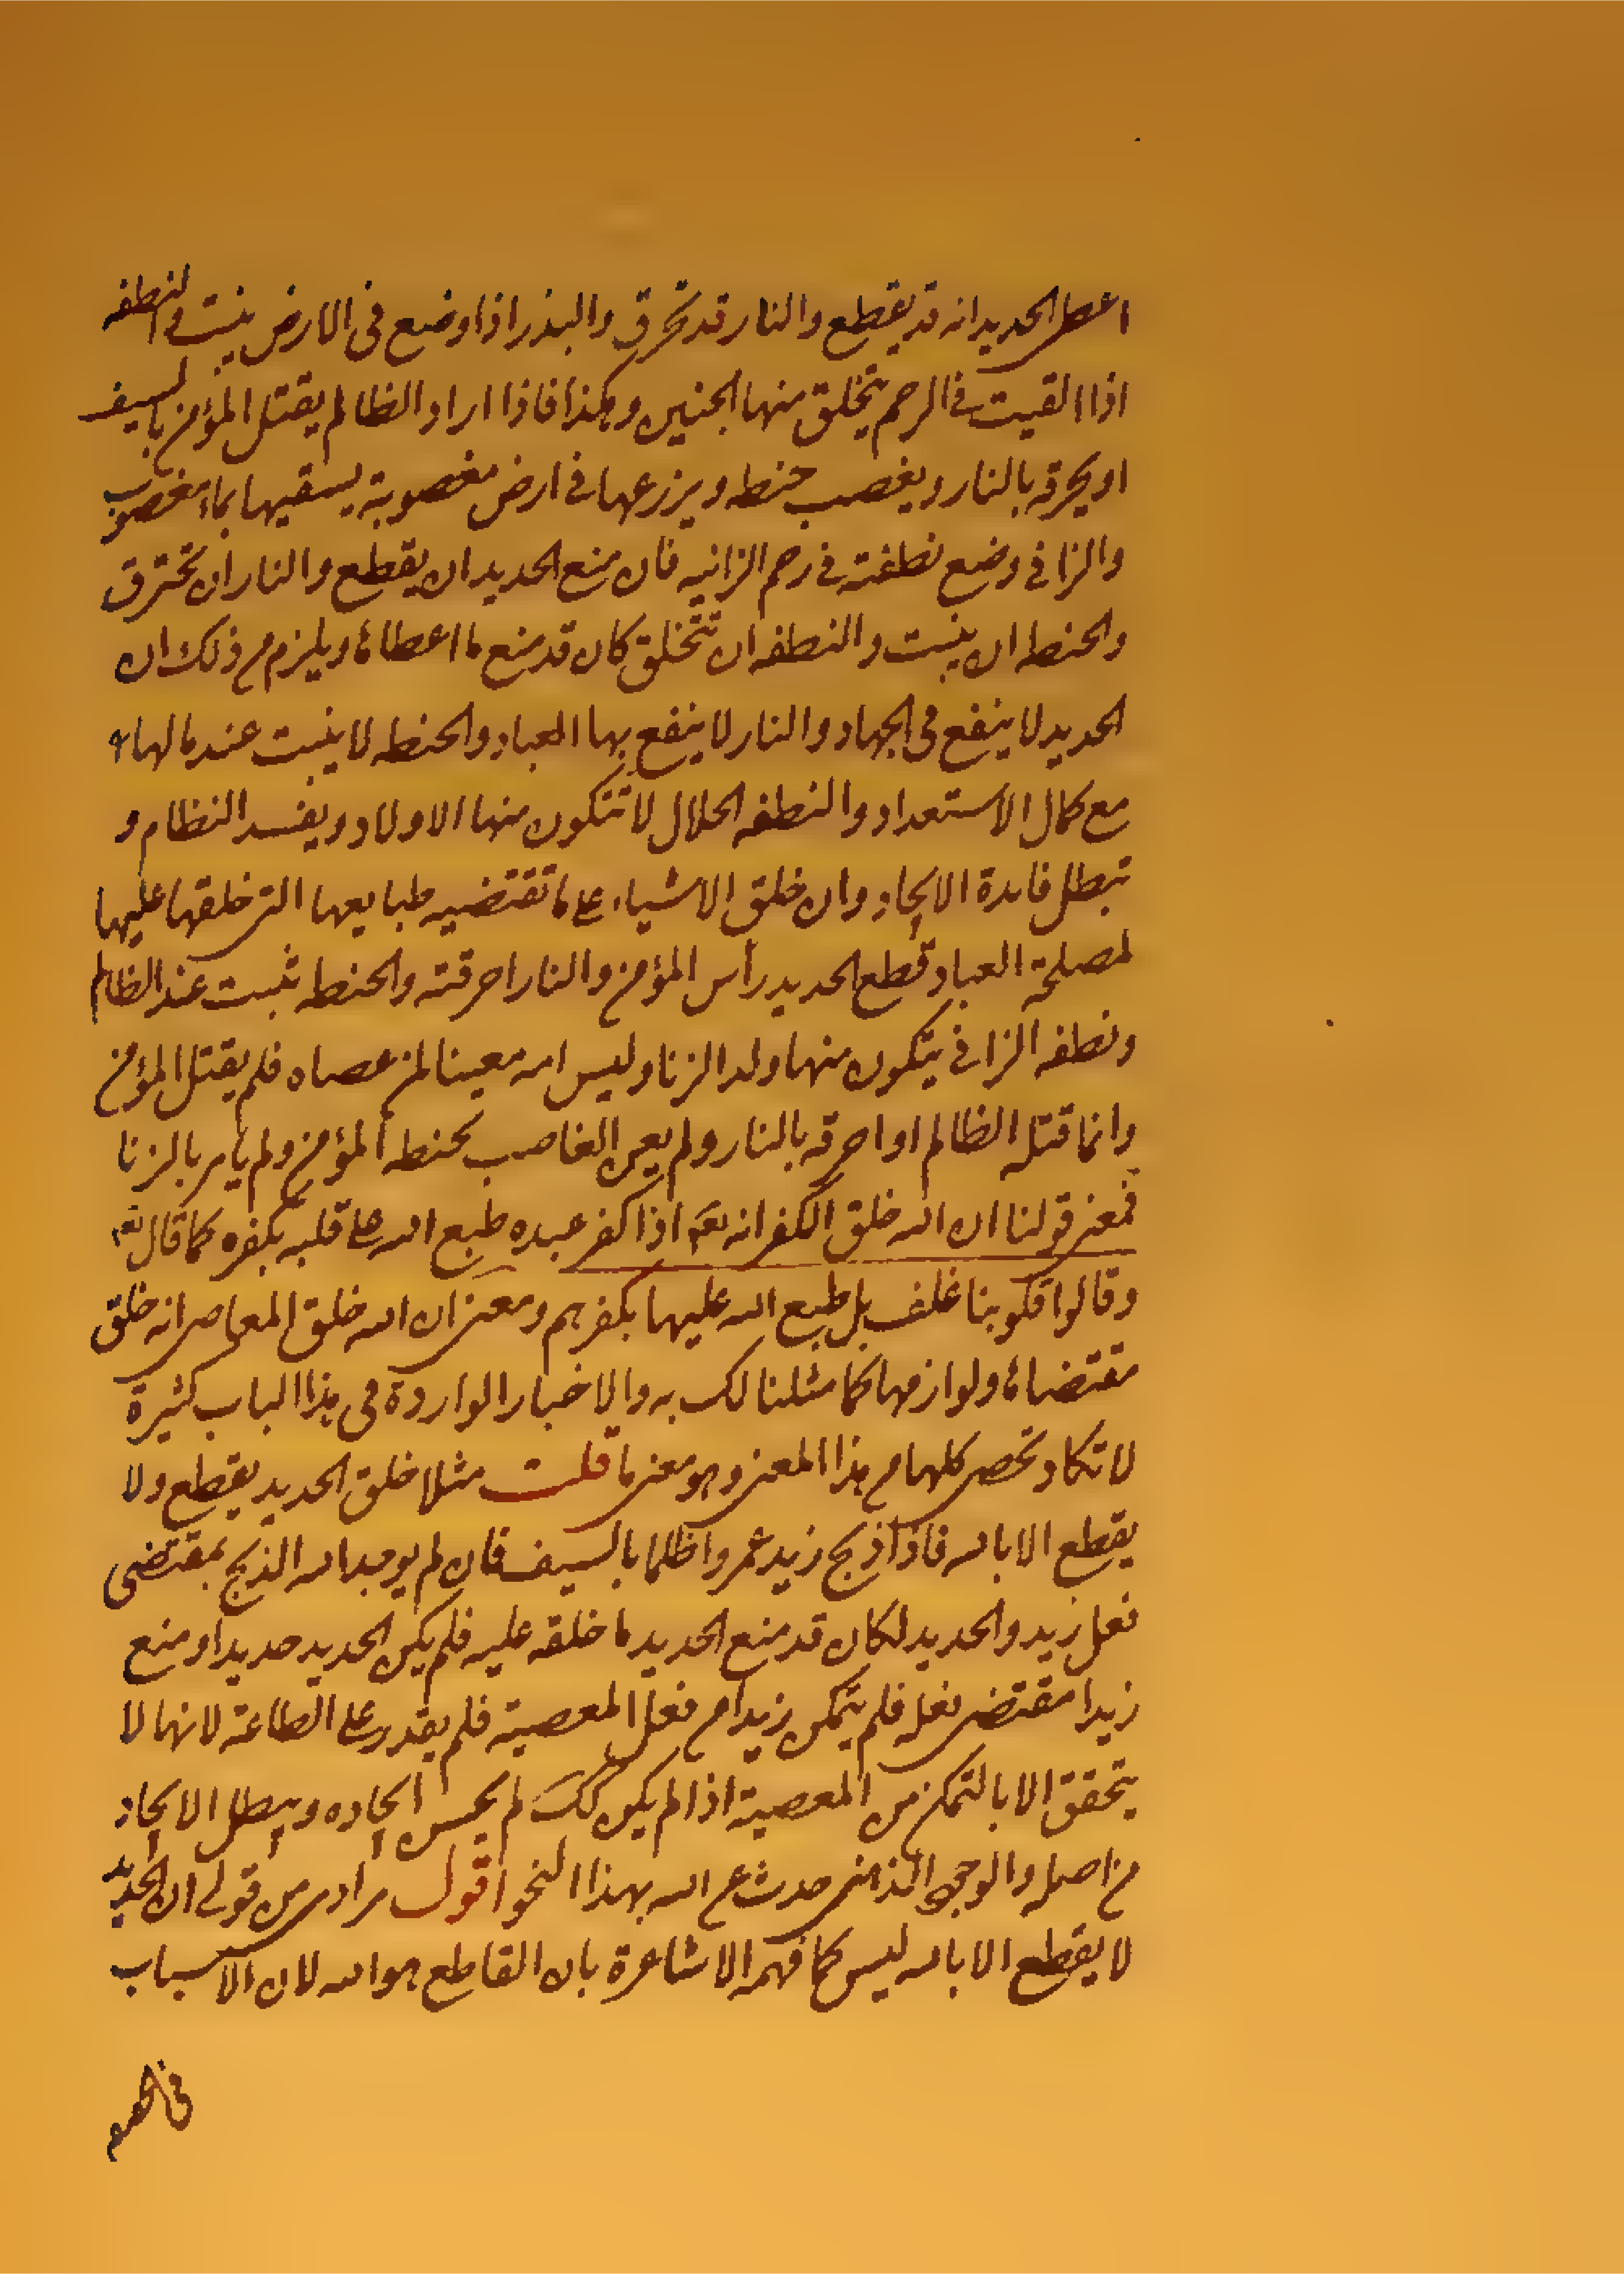 اعطى الحديد انه قد يقطع والنار قد تحرق والبذر اذا وضع في الارض ينبت والنطفه
اذا القيت في الرحم يتخلق منها الجنين وهكذا فاذا اراد الظالم يقتل المؤمن بالسيف
او يحرقه بالنار ويغصب حنطه ويزرعها في ارض مغصوبة يسقيها بماء مغصوب
والزاني وضع نطفته في رحم الزانيه فان منع الحديد ان يقطع والنار ان تحترق
والحنطه ان ينبت والنطفه ان تتخلق كان قد منع ما اعطاها ويلزم من ذلك ان
الحديد لا ينفع في الجهاد والنار لا ينفع بها العباد والحنطه لا ينبت عند مالها
مع كمال الاستعداد والنطفه الحلال لا تتكون منها الاولاد ويفسد النظام و
تبطل فايدة الايجاد وان خلق الاشياء على ما تقتضيه طبايعها التى خلقها عليها
لمصلحة العباد قطع الحديد رأس المؤمن والنار احرقته والحنطه نبت عند الظالم
ونطفه الزاني يتكون منها ولد الزنا وليس الله معينا لمن عصاه فلم يقتل المؤمن
وانما قتله الظالم او احرقه بالنار ولم يعن الغاصب بحنطه المؤمن ولم يأمر بالزنا
فمعنى قولنا ان الله خلق الكفر انه تعم اذا كفر عبده طبع الله على قلبه بكفره كما قال تع
وقالوا قلوبنا غلف بل طبع الله عليها بكفرهم ومعنى ان الله خلق المعاصى انه خلق
مقتضاها ولوازمها كما مثلنا لك به والاخبار الواردة في هذا الباب كثيرة
لا تكاد تحصى كلها من هذا المعنى وهو معنى ما قلت مثلا خلق الحديد يقطع ولا
يقطع الا بالله فاذا ذبح زيد عمروا ظلما بالسيف فان لم يوجد الله الذبح بمقتضى
فعل زيد والحديد لكان قد منع الحديد ما خلقه عليه فلم يكن الحديد حديدا ومنع
زيدا مقتضى فعله فلم يتمكن زيدا من فعل المعصية فلم يقدر على الطاعة لانها لا
يتحقق الا بالتمكن من المعصية اذا لم يكن كك لم يحسن ايجاده ويبطل الايجاد
من اصله والوجه الذى حدث عن الله بهذا النحو اقول مرادى من قولى ان الحديد
لا يقطع الا بالله ليس كما فهمه الاشاعرة بان القاطع هو الله لان الاسباب